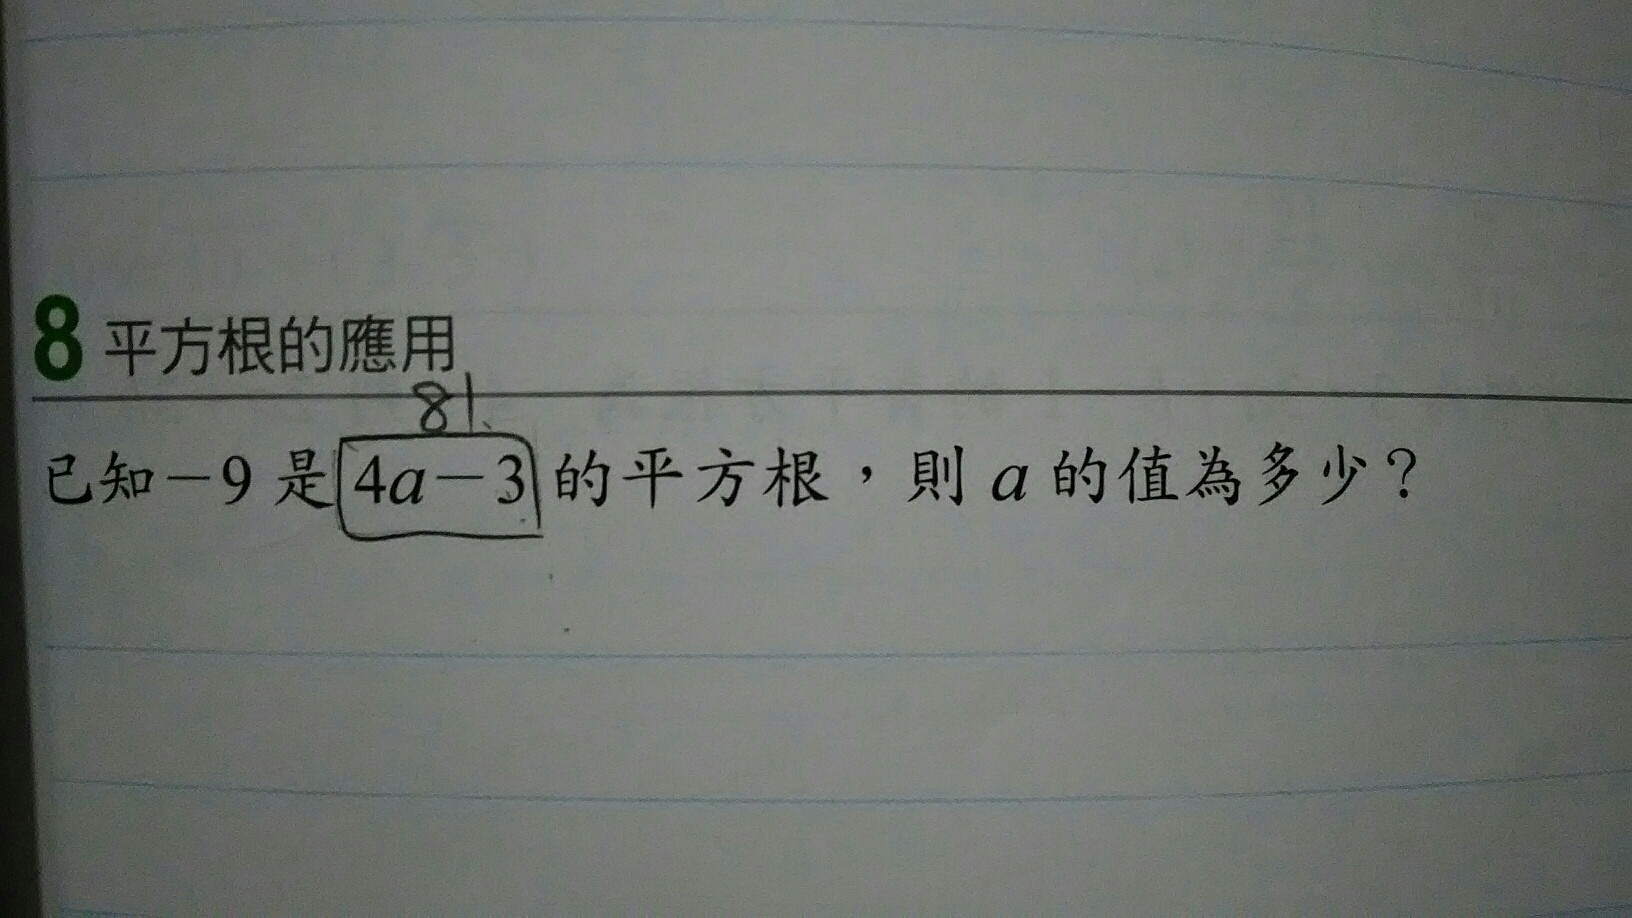 8 平方根的應用
81
已知－9 是 4a－3 的平方根，則 a 的值為多少？